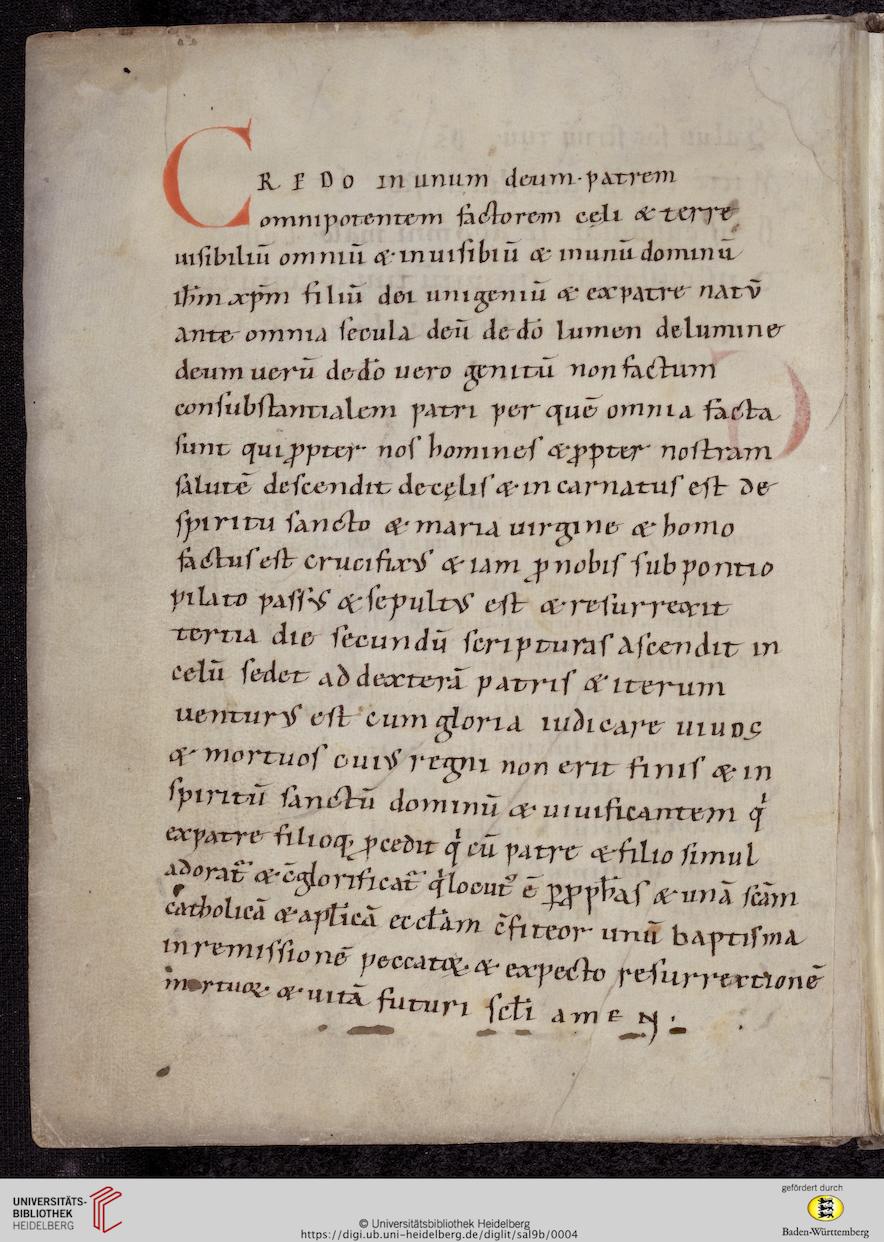 CREDO in unum deum· patrem
omnipotentem factorem cęli & terre
uisibiliū omniū & inuisibiū & inunū dominū
ihm̄ xpm̄ filiū dei unigeniū & expatre natū
ante omnia secula deū de dō lumen delumine
deum uerū dedō uero genitū non factum
consubstantialem patri per quē omnia facta
sunt qui ꝓpter nos homines & ꝓpter nostram
salutē descendit decęlis & incarnatus est de
spiritu sancto & maria uirgine & homo
factus est crucifixus & iam ꝓ nobis sub pontio
pilato passus & sepultus est & resurrexit
tertia die secundū scripturas Ascendit in
celū sedet ad dexterā patris & iterum
uenturus est cum gloria iudicare uiuos
& mortuos cuius regni non erit finis & in
spiritū sanctū dominū & uiuificantem qͥ
expatre filioq; ꝓcedit qͥ cū patre & filio simul
adorat᷑ & c̄glorificat᷑ qͥ locutꝰ ē ꝑ ꝓph̄as & unā scām
catholicā & apl̄icā eccl̄am c̄fiteor unū baptisma
inremissionē peccatoꝝ & expecto resurrectionē
mortuoꝝ & uitā futuri scl̄i amen·
UNIVERSITÄTS-
BIBLIOTHEK
HEIDELBERG
© Universitätsbibliothek Heidelberg
https://digi.ub.uni-heidelberg.de/diglit/sal9b/0004
gefördert durch
Baden-Württemberg